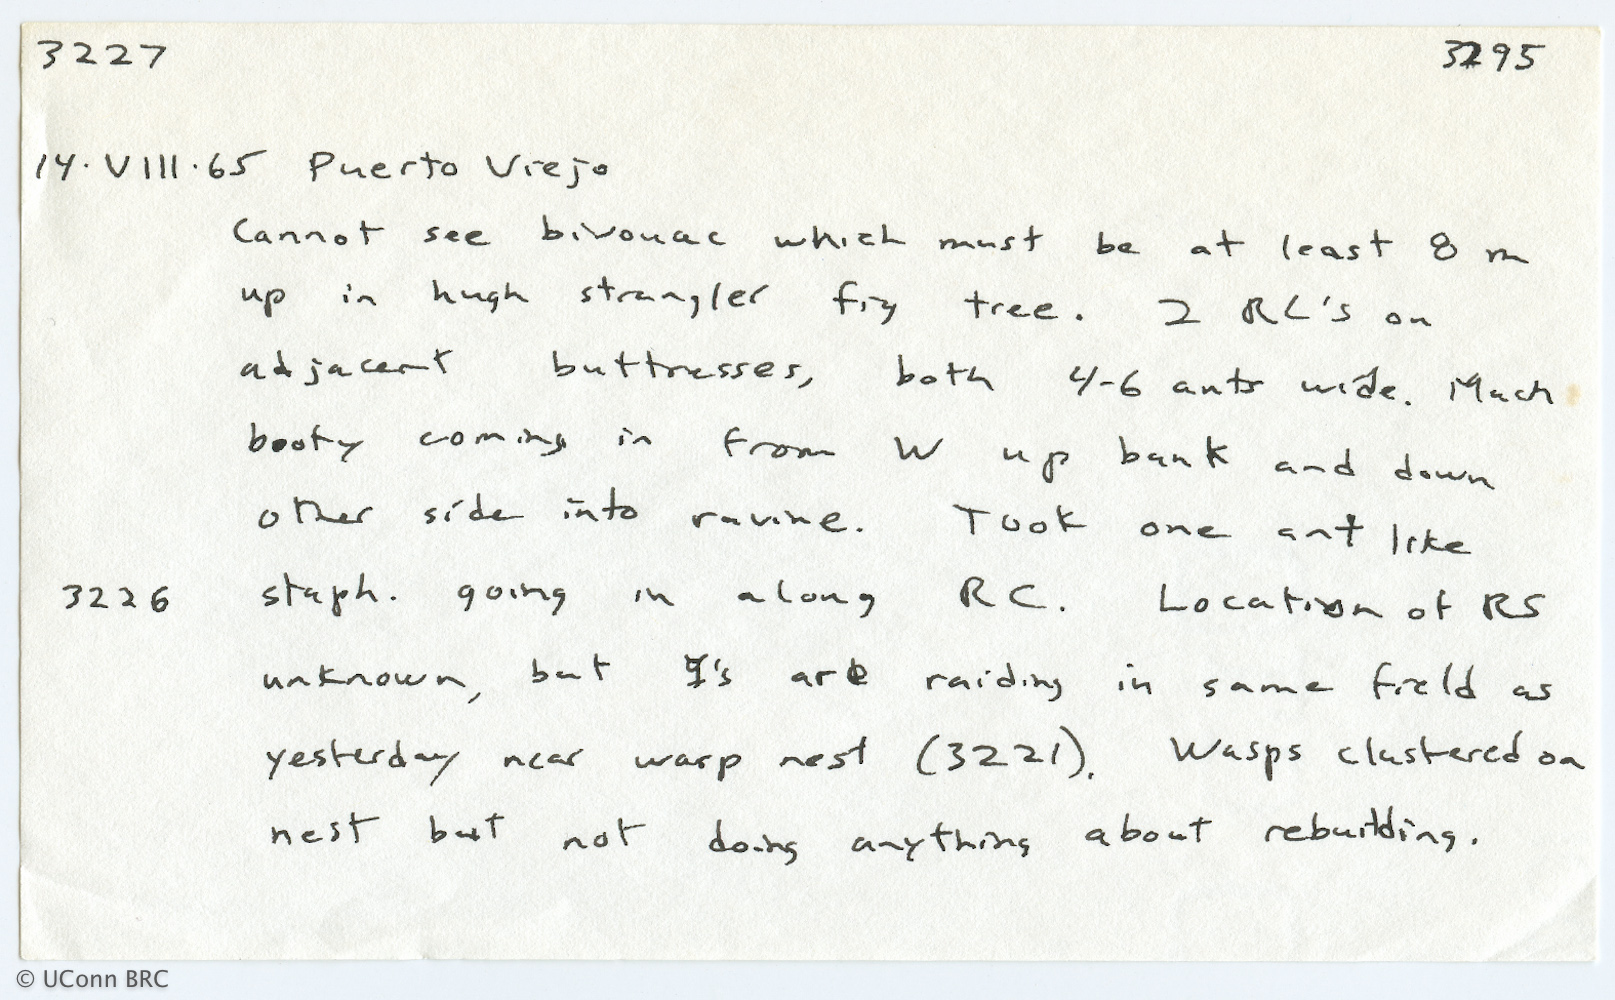 3227 3295
14.VIII.65 Puerto Viejo
Cannot see bivouac which must be at least 8 m
up in hugh strangler fig tree. 2 RC's on
adjacent buttresses, both 4-6 ants wide. Much
booty coming in from W up bank and down
other side into ravine. Took one ant like
3226 staph. going in along RC. Location of RS
unknown, but are raiding in same field as
yesterday near wasp nest (3221). Wasps clustered on
nest but not doing anything about rebuilding.
© UConn BRC